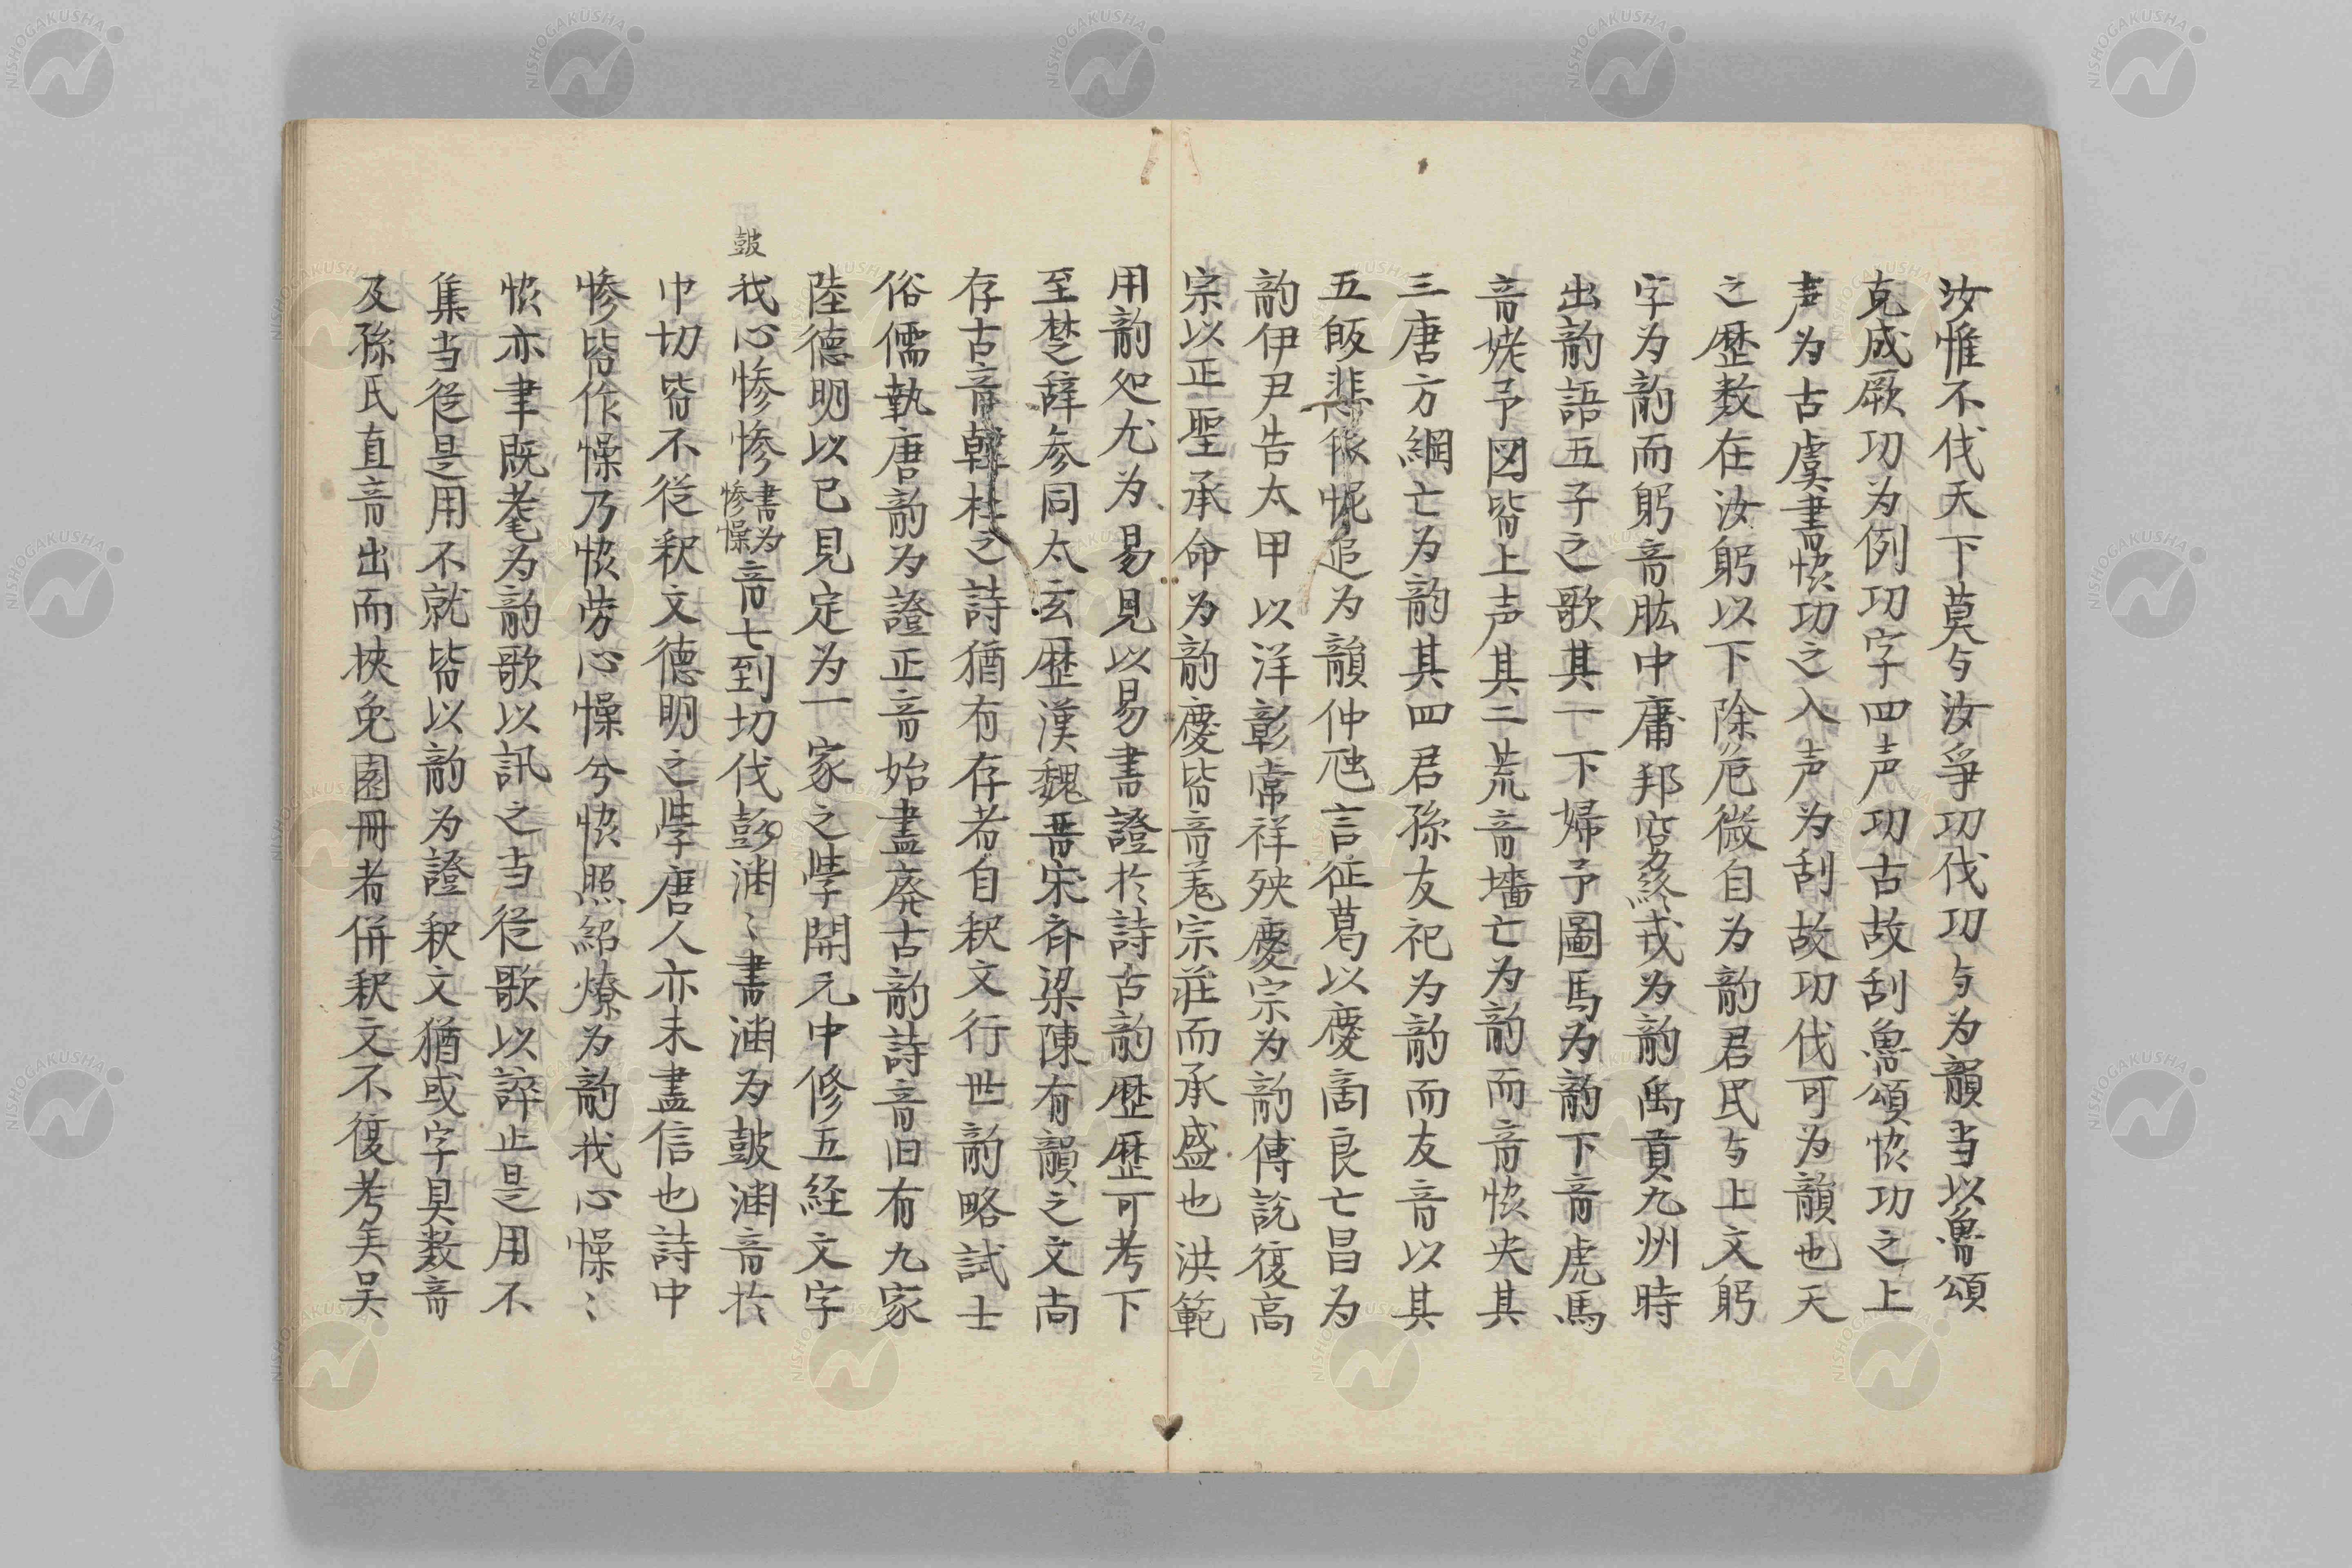 汝惟不伐天下莫与汝爭功伐功与为韻当以魯頌
克成厥功为例功字四声功古故刮魯頌恢功之上
声为古虞書恢功之入声为刮故功伐可为韻也天
之歴数在汝躬以下除危微自为韵君民与上文躬
字为韵而躬音肱中庸邦容終戎为韵禹貢九州時
出韵語五子之歌其一下婦予圖馬为韵下音虎馬
音姥予図皆上声其二荒音墻亡为韵而音恢夹其
三唐方綱亡为韵其四君孫友祀为韵而友音以其
五皈悲依怩追为韻仲虺言征葛以慶啇良亡昌为
韵伊尹告太甲以洋彰常祥殃慶宗为韵傅說復高
宗以正聖承命为韵慶皆音羌宗莊而承盛也洪範
用韵処尤为易見以易書證於詩古韵歴歴可考下
至楚辞参同太玄歴漢魏晋宋斉梁陳有韻之文尚
存古音韓杜之詩猶有存者自釈文行世韵略試士
俗儒執唐韵为證正音始盡廃古韵詩音旧有九家
陸德明以已見定为一家之斈開元中修五経文字
鼓
我心惨惨書为惨懆音七到切伐彭渊ミ書渊为鼓渊音於
巾切皆不従釈文德明之斈唐人亦未盡信也詩中
惨皆作懆乃恢労心懆兮恢照紹燎为韵我心懆ミ
恢亦聿既耄为韵歌以訊之当従歌以誶止是用不
集当従是用不就皆以韵为證釈文猶或字具数音
及孫氏直音出而挾兔園冊者併釈文不復考矣吴